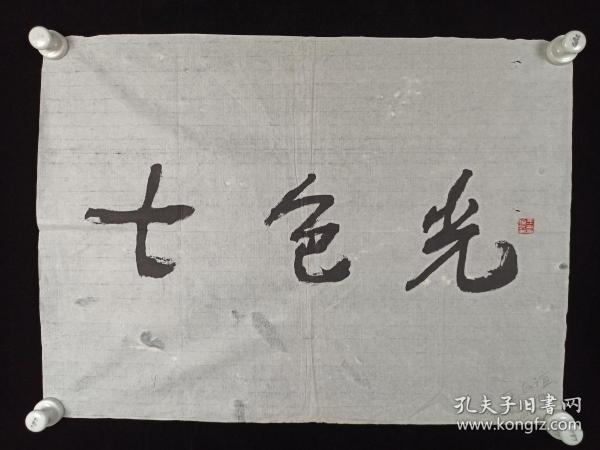 七色光
孔夫子旧書网
www.kongfz.com